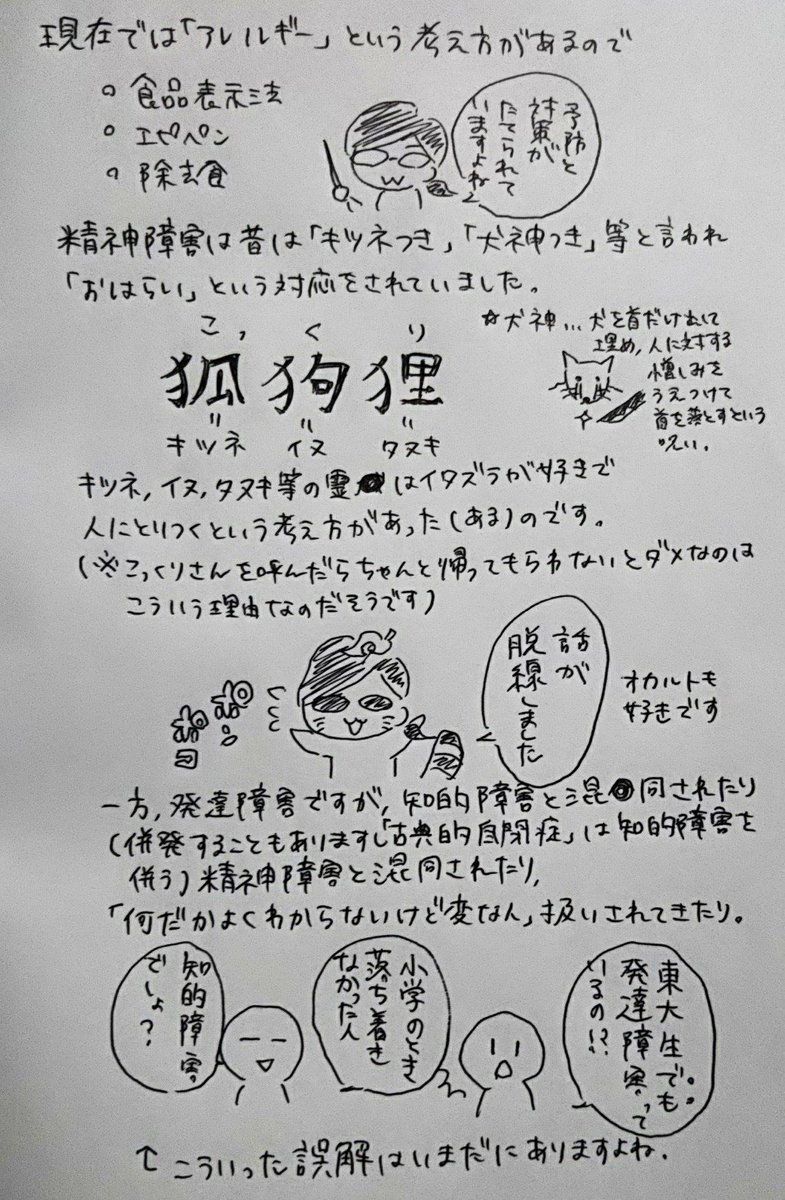 現在では「アレルギー」という考え方があるので
。食品表示法
。エピペン
。除去食
予防と
対策が
たてられて
いますよね
精神障害は昔は「キツネつき」「犬神つき」等と言われ
「おはらい」という対応をされていました。
こっくり
狐狗狸
キツネ イヌ タヌキ
☆犬神…犬を首だけ出して
埋め,人に対する
憎しみを
うえつけて
首を落とすという
呪い。
キツネ,イヌ,タヌキ等の霊はイタズラが好きで
人にとりつくという考え方があった(ある)のです。
(※こっくりさんを呼んだらちゃんと帰ってもらわないとダメなのは
こういう理由なのだそうです)
話が
脱線しました
オカルトも
好きです
一方,発達障害ですが,知的障害と混同されたり
(併発することもありますし「古典的自閉症」は知的障害を
併う)精神障害と混同されたり,
「何だかよくわからないけど変なん」扱いされてきたり。
東大生でも
発達障害って
いるの!?
小学のとき
落ち着き
なかった人
知的障害
でしょ?
↑こういった誤解はいまだにありますよね.